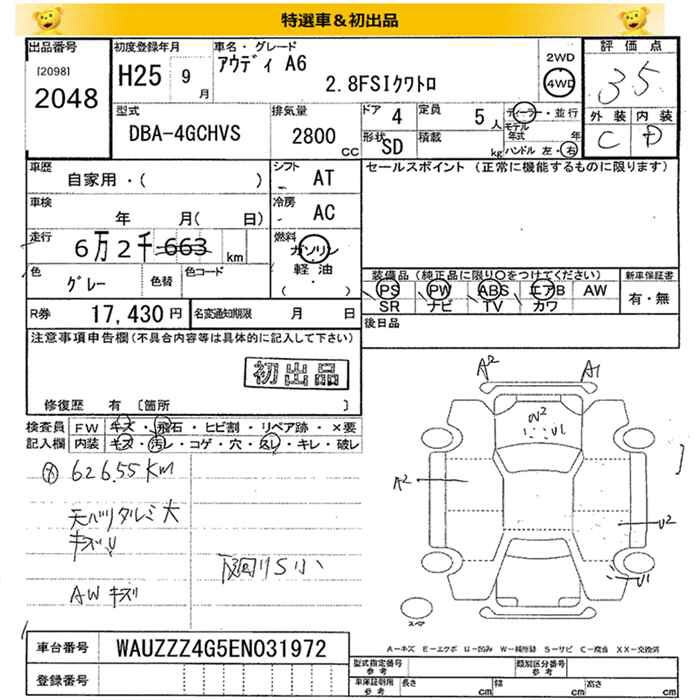 特選車＆初出品
出品番号 [2098] 2048
初度登録年月 H25 9月
車名・グレード アウディ A6 2.8FSIクワトロ
2WD 4WD
評価点 3.5
外装 C 内装 D
型式 DBA-4GCHVS
排気量 2800 CC
ドア 4 定員 5人
形状 SD 積載 kg
ディーラー・並行
モデル年式 年
ハンドル 左・右
車歴 自家用・( )
シフト AT
セールスポイント (正常に機能するものに限ります)
車検 年 月( 日)
冷房 AC
走行 6万2千663 km
燃料 ガソリン 軽油 ( ・ )
色 グレー 色替 色コード
装備品(純正品に限り○をつけてください) 新車保証書
PS PW ABS エアB AW 有・無
SR ナビ TV カワ
R券 17,430円 名変通知期限 月 日
後日品
注意事項申告欄(不具合内容等は具体的に記入して下さい)
初出品
修復歴 有 〔箇所 〕
検査員記入欄
FW キズ・飛石・ヒビ割・リペア跡・×要
内装 キズ・汚レ・コゲ・穴・スレ・キレ・破レ
62655KM
天バリタルミ大
キズ
AWキズ
下回りS小
A2 A1
W2 U1
A2
U2
U1
スペア
A－キズ E－エクボ U－凹み W－補修跡 S－サビ C－腐食 XX－交換済
車台番号 WAUZZZ4G5EN031972
登録番号
型式指定番号 参考 類別区分番号 参考
車庫証明用 参考 長さ cm 幅 cm 高さ cm